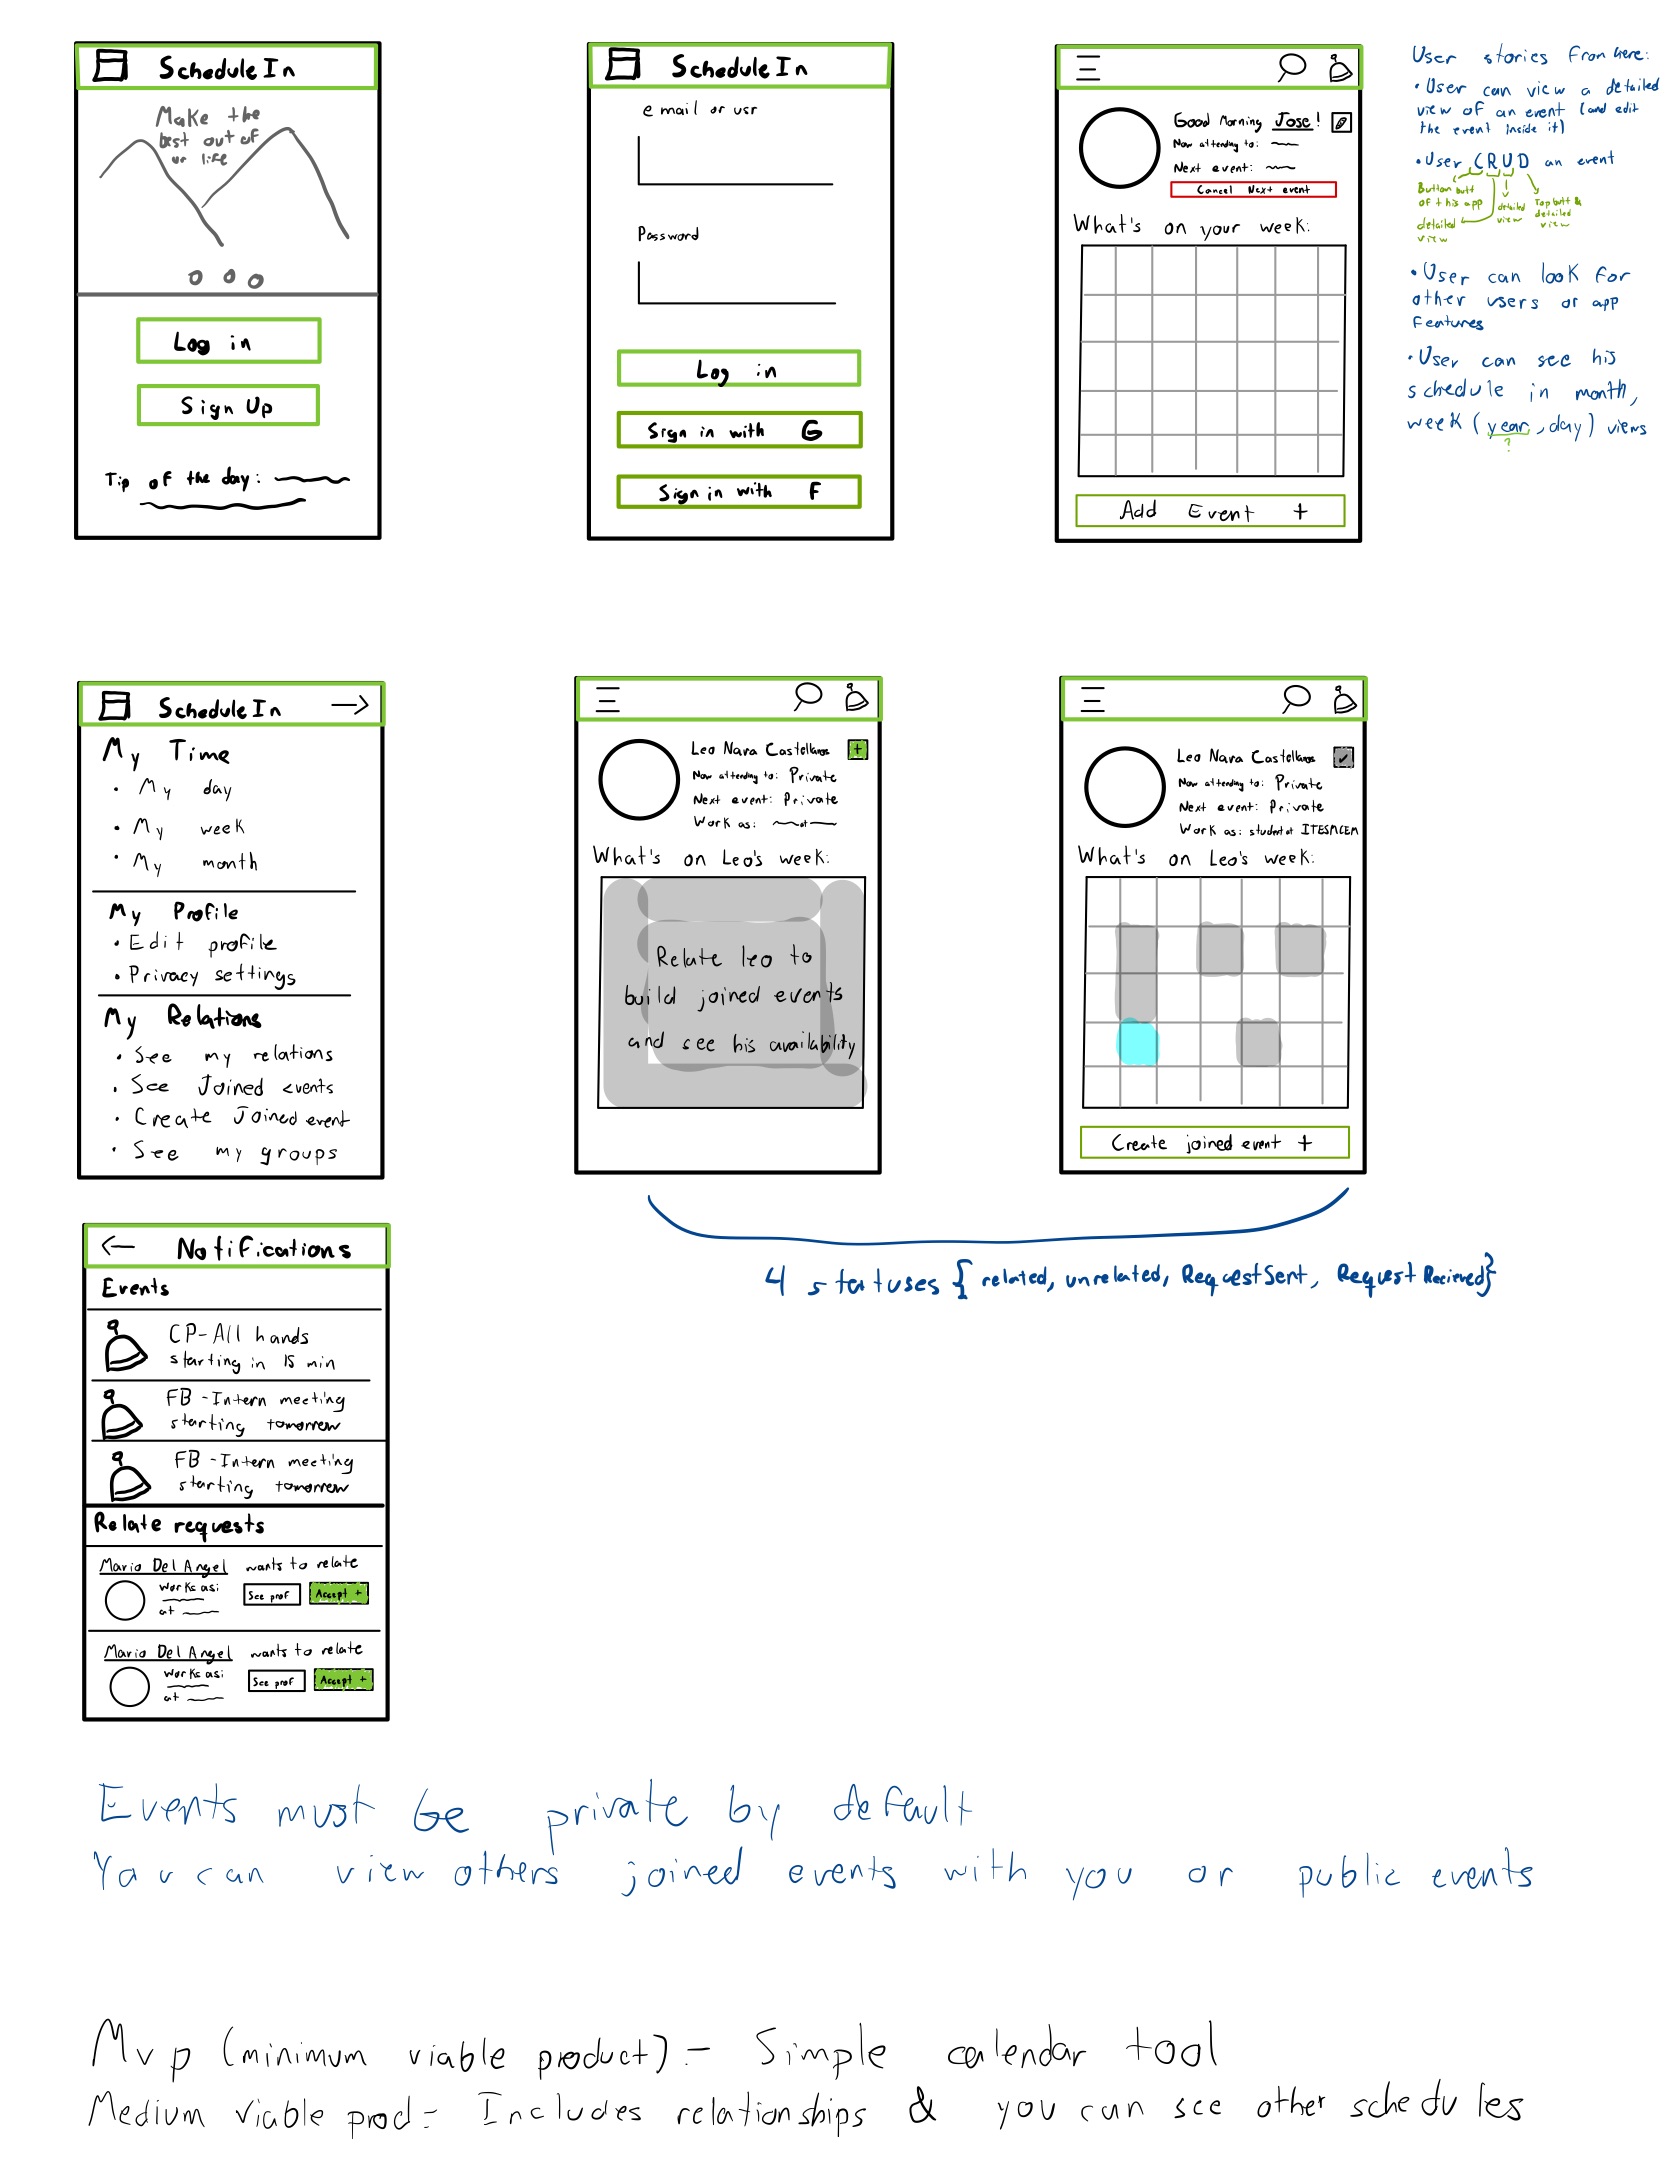 ScheduleIn
Make the
best out of
ur life
Log in
Sign Up
Tip of the day:
ScheduleIn
email or usr
Password
Log in
Sign in with G
Sign in with F
Good Morning Jose!
Now attending to:
Next event:
Cancel Next event
What's on your week:
Add Event +
User stories from here:
• User can view a detailed
view of an event (and edit
the event inside it)
• User CRUD an event
Button butt
of this app
detailed
view
detailed
view
Top butt &
detailed
view
• User can look for
other users or app
features
• User can see his
schedule in month,
week (year, day) views
?
ScheduleIn →
My Time
• My day
• My week
• My month
My Profile
• Edit profile
• Privacy settings
My Relations
• See my relations
• See Joined events
• Create Joined event
• See my groups
Leo Nava Castellanos +
Now attending to: Private
Next event: Private
Work as: at
What's on Leo's week:
Relate leo to
build joined events
and see his availability
Leo Nava Castellanos ✓
Now attending to: Private
Next event: Private
Work as: student at ITESMCEM
What's on Leo's week:
Create joined event +
4 statuses { related, unrelated, RequestSent, Request Recieved}
← Notifications
Events
CP-All hands
starting in 15 min
FB-Intern meeting
starting tomorrow
FB-Intern meeting
starting tomorrow
Relate requests
Mario Del Angel wants to relate
Works as:
at
See prof
Accept +
Mario Del Angel wants to relate
Works as:
at
See prof
Accept +
Events must be private by default
You can view others joined events with you or public events
Mvp (minimum viable product):- Simple calendar tool
Medium viable prod:- Includes relationships & you can see other schedules